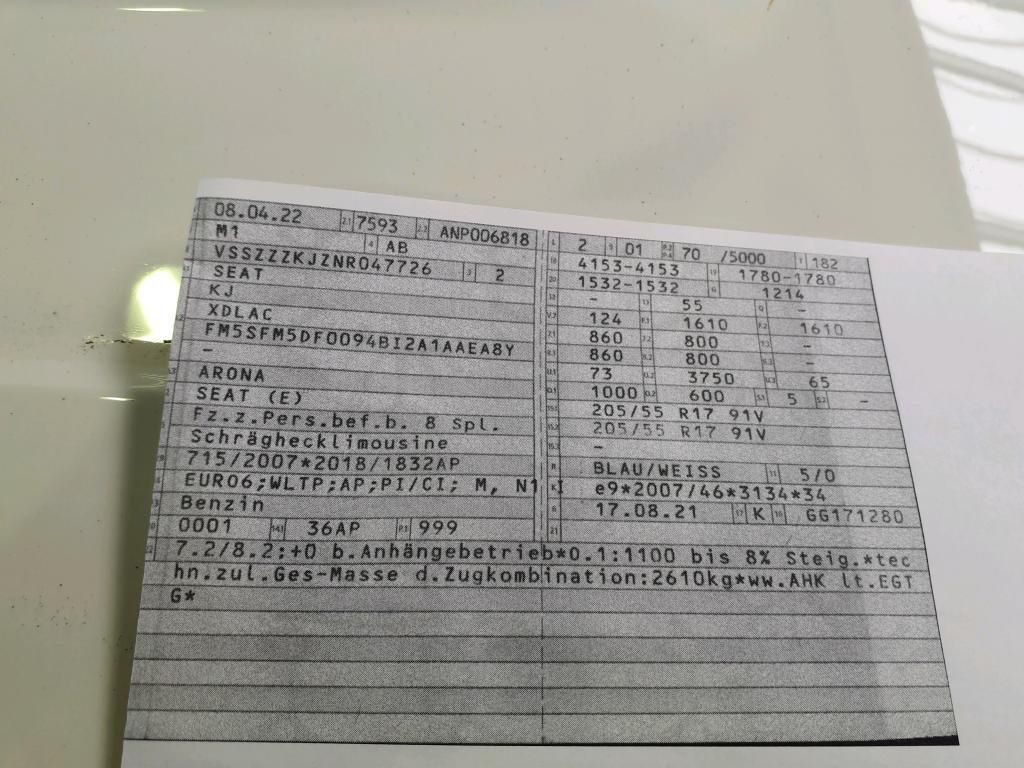 08.04.22 7593 ANP006818
M1 AB
VSSZZZKJZNR047726 2
SEAT
KJ
XDLAC
FM5SFM5DF0094BI2A1AAEA8Y
–
ARONA
SEAT (E)
Fz.z.Pers.bef.b. 8 Spl.
Schräghecklimousine
715/2007*2018/1832AP
EURO6;WLTP;AP;PI/CI; M, N1 I
Benzin
0001 36AP 999
2 01 70 /5000 182
4153-4153 1780-1780
1532-1532 1214
– 55 –
124 1610 1610
860 800 –
860 800 –
73 3750 65
1000 600 5 –
205/55 R17 91V
205/55 R17 91V
–
BLAU/WEISS 5/0
e9*2007/46*3134*34
17.08.21 K GG171280
7.2/8.2:+0 b.Anhängebetrieb*0.1:1100 bis 8% Steig.*tec
hn.zul.Ges-Masse d.Zugkombination:2610kg*ww.AHK lt.EGT
G*